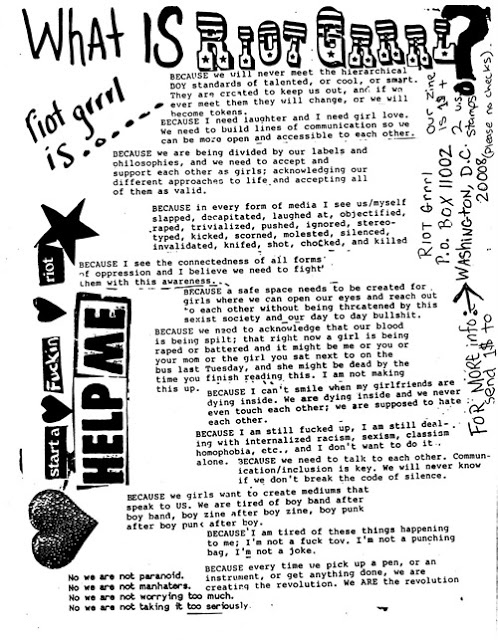 WHAT IS RIOT GRRRL?
riot grrrl
is........
BECAUSE we will never meet the hierarchical
BOY standards of talented, or cool, or smart.
They are created to keep us out, and if we
ever meet them they will change, or we will
become tokens.
BECAUSE I need laughter and I need girl love.
We need to build lines of communication so we
can be more open and accessible to each other.
BECAUSE we are being divided by our labels and
philosophies, and we need to accept and
support each other as girls; acknowledging our
different approaches to life and accepting all
of them as valid.
BECAUSE in every form of media I see us/myself
slapped, decapitated, laughed at, objectified,
raped, trivialized, pushed, ignored, stereo-
typed, kicked, scorned, molested, silenced,
invalidated, knifed, shot, chocked, and killed
BECAUSE I see the connectedness of all forms
of oppression and I believe we need to fight
them with this awareness...
BECAUSE a safe space needs to be created for
girls where we can open our eyes and reach out
to each other without being threatened by this
sexist society and our day to day bullshit.
BECAUSE we need to acknowledge that our blood
is being spilt; that right now a girl is being
raped or battered and it might be me or you or
your mom or the girl you sat next to on the
bus last Tuesday, and she might be dead by the
time you finish reading this. I am not making
this up.
BECAUSE I can't smile when my girlfriends are
dying inside. We are dying inside and we never
even touch each other; we are supposed to hate
each other.
BECAUSE I am still fucked up, I am still deal-
ing with internalized racism, sexism, classism
homophobia, etc., and I don't want to do it
alone.
BECAUSE we need to talk to each other. Commun-
ication/inclusion is key. We will never know
if we don't break the code of silence.
BECAUSE we girls want to create mediums that
speak to US. We are tired of boy band after
boy band, boy zine after boy zine, boy punk
after boy punk after boy.
BECAUSE I am tired of these things happening
to me; I'm not a fuck toy. I'm not a punching
bag, I'm not a joke.
BECAUSE every time we pick up a pen, or an
instrument, or get anything done, we are
creating the revolution. We ARE the revolution
No we are not paranoid.
No we are not manhaters.
No we are not worrying too much.
No we are not taking it too seriously.
start a
Fuckin
riot
HELP ME
FOR MORE info:
send 1$ to
RIOT Grrrl
P.O. BOX 11002
WASHINGTON, D.C.
20008
(please no checks)
OUR zine
is 1$ +
2 US
stamps